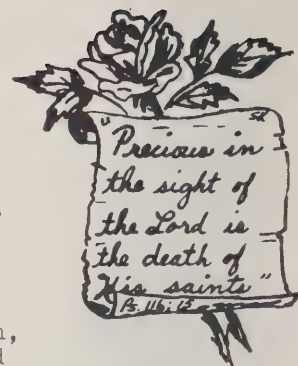 "Precious in
the sight of
the Lord is
the death of
His saints"
Ps. 116:15
n,
d